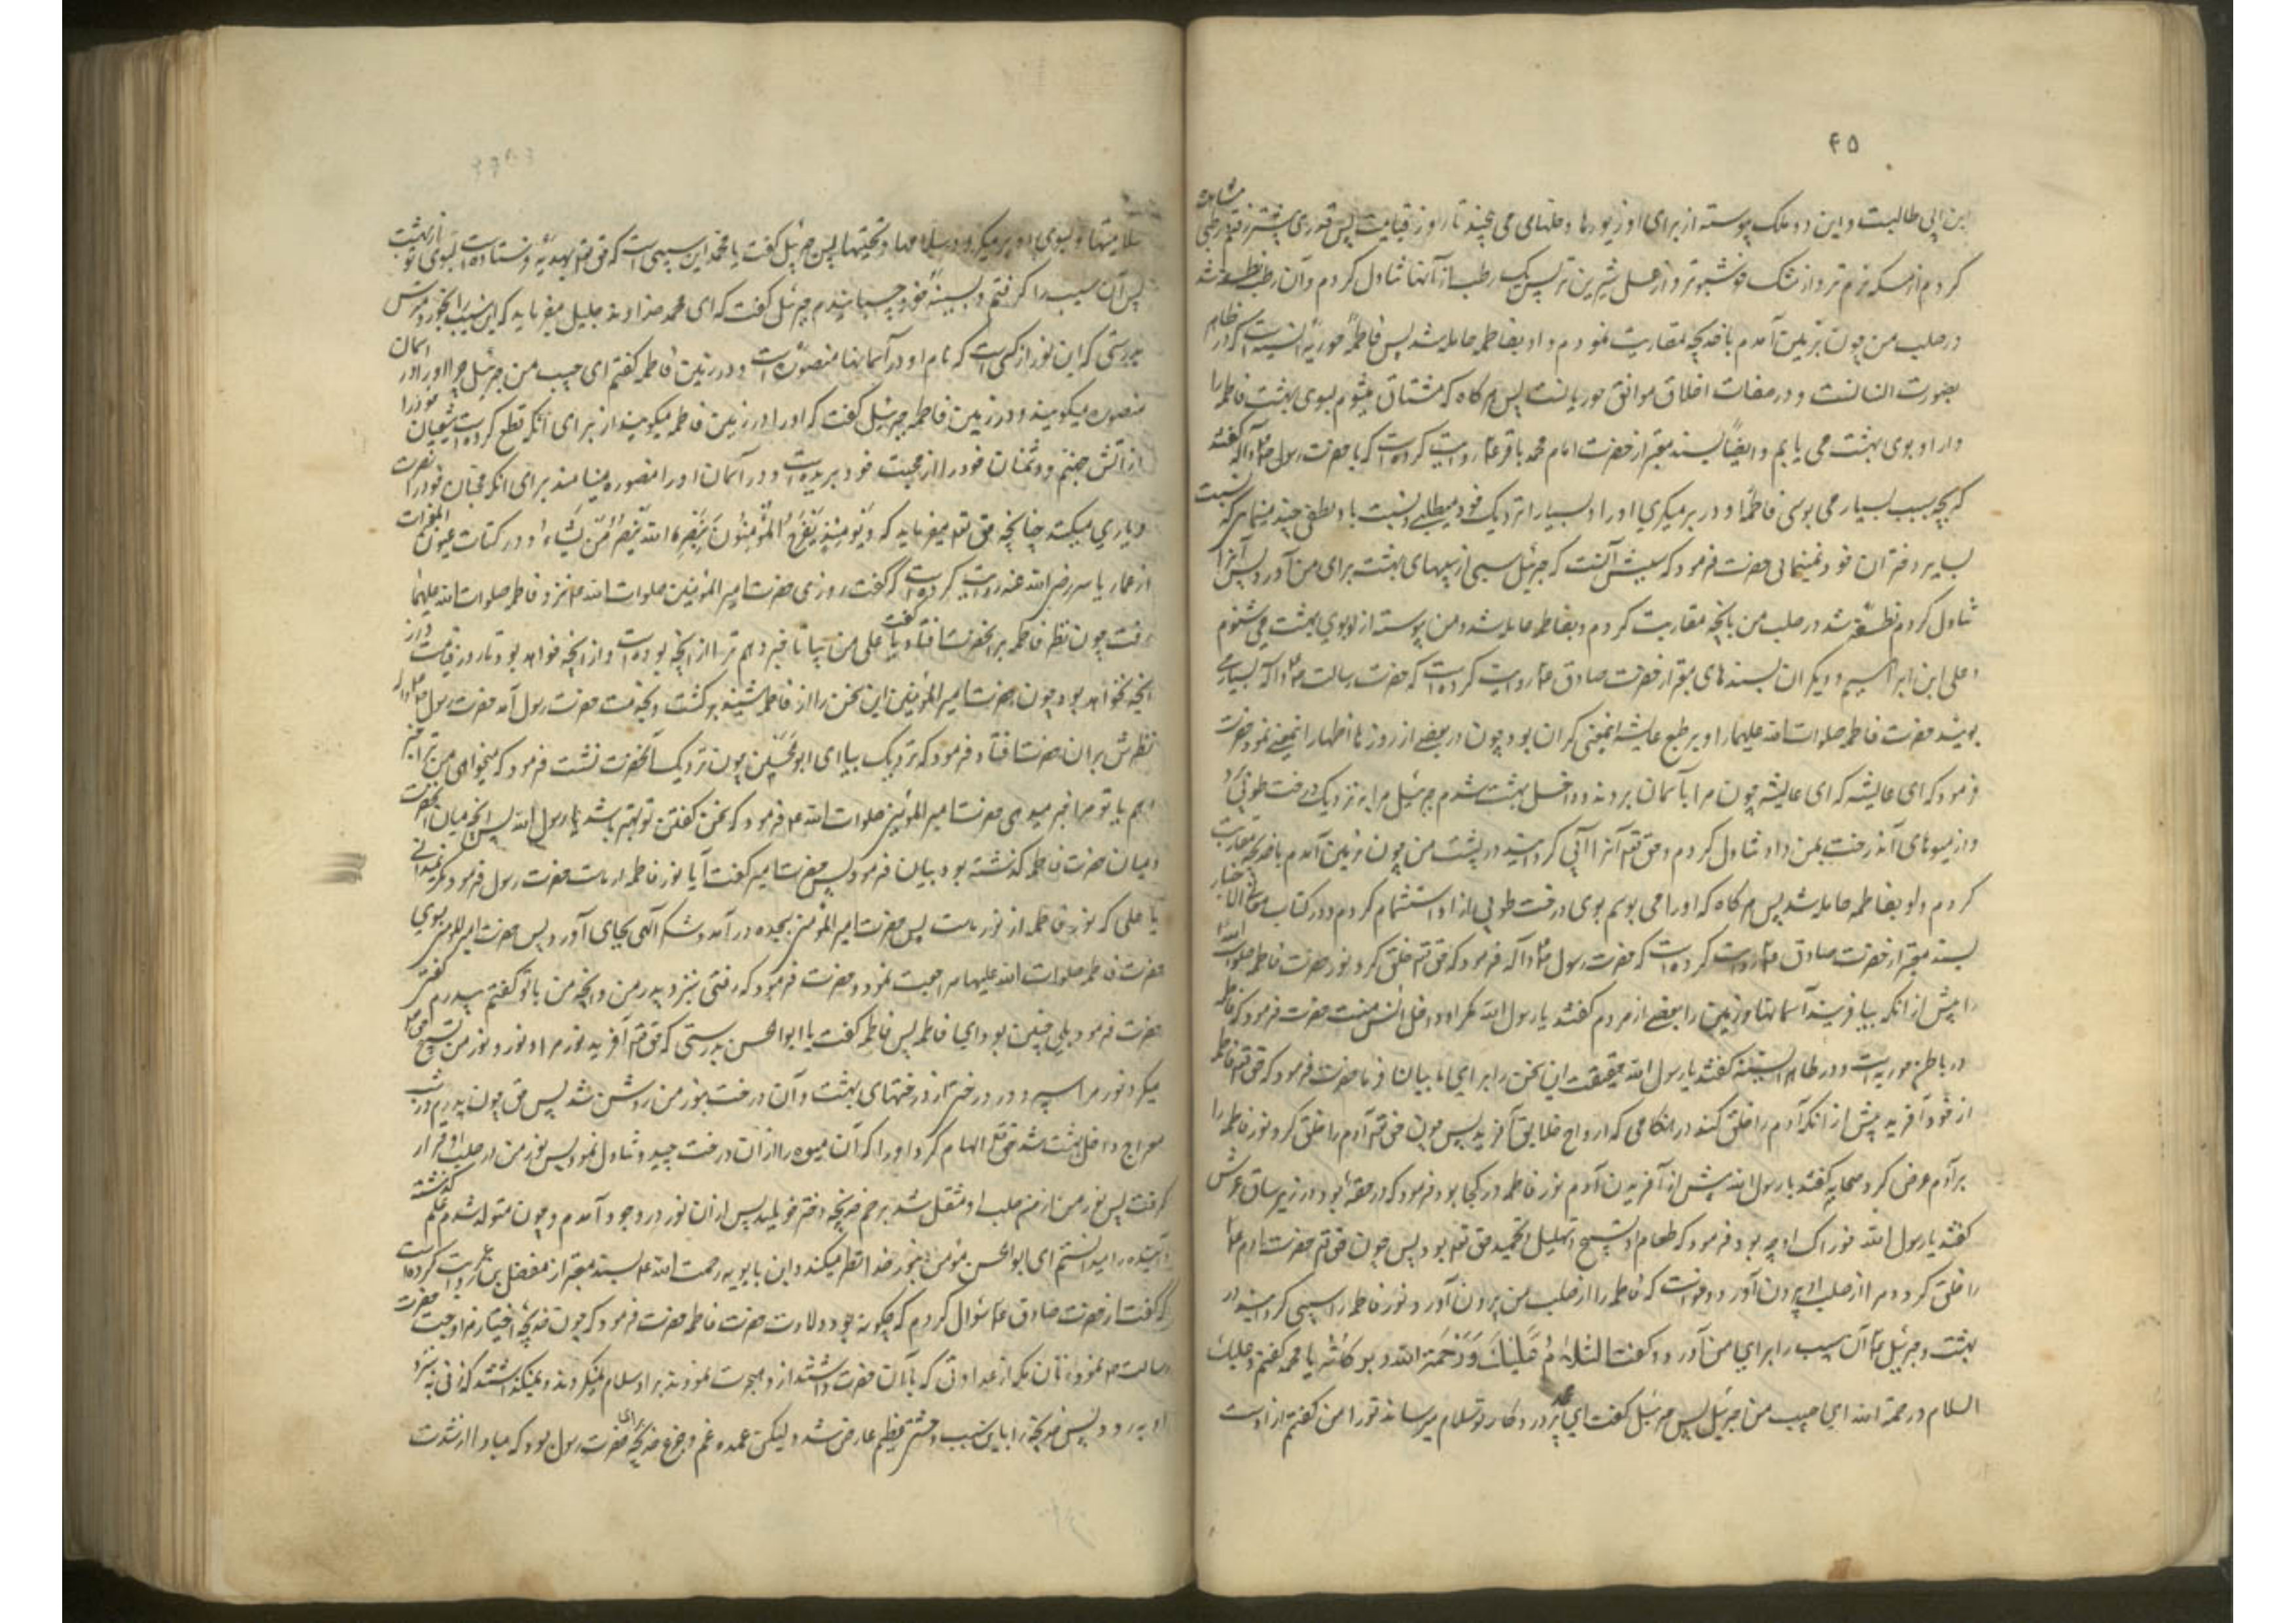 ۴۵
ابن ابی طالبست و این دو ملک پیوسته از برای او زیورها و حلها می چینند تا روز قیامت پس قدری پیشتر رفتم رطبی مشاهده
کردم از مسکه نرم تر و از مشک خوشبوتر و از عسل شیرین تر پس یک رطب از آنها تناول کردم و آن رطب نطفه شد
در صلب من چون بزمین آمدم با خدیجه مقاربت نمودم و او بفاطمه حامله شد پس فاطمه حوریه انسیه است که در ظاهر
بصورت انسانست و در صفات اخلاق موافق حوریانست پس هر گاه که مشتاق میشوم بسوی بهشت فاطمه را
و از او بوی بهشت می یابم و ایضاً بسند معتبر از حضرت امام محمد باقر ع روایت کرده است که با حضرت رسول ص و آله گفتند
که بچه سبب بسیار می بوسی فاطمه را و در بر میگیری او را و بسیار نزدیک خود میطلبی و نسبت باو لطفی چند مینمایی که نسبت
بسایر دختران خود نمینمائی حضرت فرمود که سببش آنست که جبرئیل سیبی از سیبهای بهشت برای من آورد پس آنرا
تناول کردم نطفه شد در صلب من با خدیجه مقاربت کردم و بفاطمه حامله شد و من پیوسته از او بوی بهشت می شنوم
و علی ابن ابراهیم و دیگران بسندهای معتبر از حضرت صادق ع روایت کرده است که حضرت رسالت ص و آله بسیار می
بوسید حضرت فاطمه صلوات الله علیها را و بر طبع عایشه اینمعنی گران بود چون در بعضی از روزها اظهار اینمعنی نمود حضرت
فرمود که ای عایشه که ای عایشه چون مرا بآسمان بردند و داخل بهشت شدم جبرئیل مرا به نزدیک درخت طوبی برد
و از میوهای آندرخت بمن داد تناول کردم و حق تعم آنرا آبی گردانید در پشت من چون بزمین آمدم با خدیجه مقاربت
کردم و او بفاطمه حامله شد پس هر گاه که او را می بوسم بوی درخت طوبی از او استشمام کردم و در کتاب معانی الاخبار
بسند معتبر از حضرت صادق ع روایت کرده است که حضرت رسول ص و آله فرمود که حق تعم خلق کرد نور حضرت فاطمه صلوات الله
را پیش از آنکه بیافریند آسمانها و زمین را بعضی از مردم گفتند یا رسول الله مگر او داخل انس نیست حضرت فرمود که فاطمه
در باطن حوریه است و در ظاهر انسیه گفتند یا رسول الله حقیقت این سخن را برای ما بیان فرما حضرت فرمود که حق تعم فاطمه را
از نور خود آفرید پیش از آنکه آدم را خلق کند در هنگامی که ارواح خلایق آفرید پس چون حق تعم آدم را خلق کرد نور فاطمه را
بر آدم عرض کرد صحابه گفتند یا رسول الله پیش از آفریدن آدم نور فاطمه در کجا بود فرمود که در حقه بود در زیر ساق عرش
گفتند یا رسول الله خوراک او چه بود فرمود که طعام او تسبیح و تهلیل و تحمید حق تعم بود پس چون حق تعم حضرت آدم ع
را خلق کرد و مرا از صلب او بیرون آورد و خواست که فاطمه را از صلب من بیرون آورد نور فاطمه را سیبی گردانید در
بهشت و جبرئیل ع آن سیب را برای من آورد و گفت السَّلامُ عَلَیْکَ وَرَحْمَةُ الله و برکاته یا محمد گفتم و علیک
السلام و رحمة الله ای حبیب من جبرئیل پس جبرئیل گفت ای محمد پروردگار تو سلام میرساند تو را من گفتم از اوست
سلامتیها و بسوی او بر میگردد سلامها و تحیتها پس جبرئیل گفت یا محمد این سیبی است که حق تعم بهدیه فرستاده است بسوی تو از بهشت
پس آن سیب را گرفتم و بسینه خود چسبانیدم جبرئیل گفت که ای محمد خداوند جلیل میفرماید که این سیب را بخور و مترس
بدرستی که این نور از کسی است که نام او در آسمانها منصوره است و در زمین فاطمه گفتم ای حبیب من جبرئیل چرا او را در اسمان
منصوره میگویند و در زمین فاطمه جبرئیل گفت که او را در زمین فاطمه میگویند از برای آنکه قطع کرده است شیعیان خود را
از آتش جهنم و دشمنان خود را از محبت خود بریده است و در آسمان او را منصوره مینامند برای آنکه محبان خود را نصرت
و یاری میکند چنانچه حق تعم میفرماید که وَیَوْمَئِذٍ یَفْرَحُ الْمُؤْمِنُونَ بِنَصْرِ اللهِ یَنْصُرُ مَنْ یَشَاءُ و در کتاب عیون المعجزات
از عمار یاسر رضی الله عنه روایت کرده است که گفت روزی حضرت امیر المومنین صلوات الله ع نزد فاطمه صلوات الله علیها
رفت چون نظر فاطمه بر آنحضرت افتاد گفت یا علی من بیا تا خبر دهم ترا از آنچه بوده است و از آنچه خواهد بود تا روز قیامت و از
آنچه نخواهد بود چون حضرت امیر المؤمنین این سخن را از فاطمه شنید برگشت و بخدمت حضرت رسول آمد حضرت رسول ص و آله
نظرش بر آن حضرت افتاد فرمود که نزدیک بیا ای ابو الحسن چون نزدیک آنحضرت نشست فرمود که میخواهی من ترا خبر
دهم یا تو مرا خبر میدهی حضرت امیر المؤمنین صلوات الله ع فرمود که سخن گفتن تو بهتر باشد یا رسول الله پس آنچه میان آنحضرت
و میان حضرت فاطمه گذشته بود بیان فرمود پس حضرت امیر گفت آیا نور فاطمه از ماست حضرت رسول فرمود مگر نمیدانی
یا علی که نور فاطمه از نور ماست پس حضرت امیر المؤمنین بسجده در آمد و شکر آلهی بجای آورد پس حضرت امیر المومنین بسوی
حضرت فاطمه صلوات الله علیها مراجعت نمود و حضرت فرمود که رفتی بنزد پدر من و آنچه من با تو گفتم بپدرم گفتی
حضرت فرمود بلی چنین بود ای فاطمه پس فاطمه گفت یا ابوالحسن بدرستی که حق تعم آفرید نور مرا و نور من تسبیح حق تعم
میکرد نور مرا سپرد در درختی از درختهای بهشت و آن درخت بنور من روشن شد پس حق چون پدرم در شب
معراج داخل بهشت شد حق تعم الهام کرد او را که آن میوه را از آن درخت چید و تناول نمود پس نور من در صلب او قرار
گرفت پس نور من از صلب او منتقل شد برحم خدیجه دختر خویلد پس از آن نور در وجود آمدم و چون متولد شدم علم گذشته
و آینده را میدانستم ای ابوالحسن مؤمن بنور خدا نظر میکند و ابن بابویه رحمت الله ع بسند معتبر از مفضل بن عمر روایت کرده است
که گفت از حضرت صادق ع سؤال کردم که چگونه بود ولادت حضرت فاطمه حضرت فرمود که چون خدیجه اختیار مزاوجت حضرت
رسالت ص نمود زنان مکه از عداوتی که با آن حضرت داشتند از او هجرت نمودند بر او سلام نمیکردند و نمیگذاشتند که زنی به نزد
او برود پس خدیجه را باین سبب وحشتی عظیم عارض شد و لیکن عمده غم و جزع خدیجه برای حضرت رسول بود که مبادا از شدت